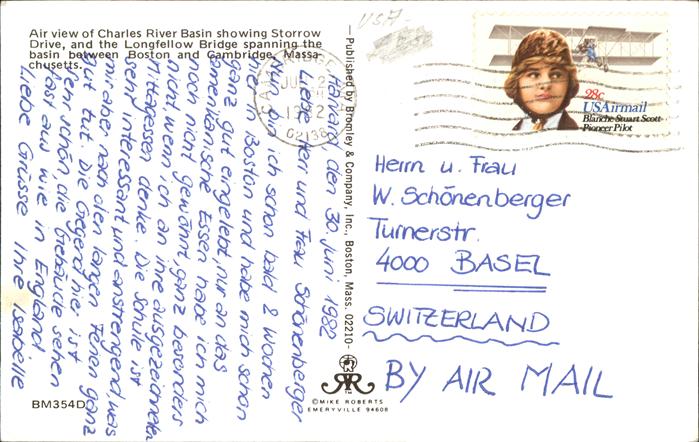 Air view of Charles River Basin showing Storrow
Drive, and the Longfellow Bridge spanning the
basin between Boston and Cambridge, Massa-
chusetts.
Harvard den 30. Juni 1982
Liebe Herr und Frau Schönenberger
Nun bin ich schon bald 2 Wochen
in Boston und habe mich schon
ganz gut eingelebt, nur an das
amerikanische Essen habe ich mich
noch nicht gewöhnt, ganz besonders
nicht wenn ich an ihre ausgezeichneten
Mittagessen denke. Die Schule ist
sehr interessant und anstrengend, was
mir aber nach den langen Ferien ganz
gut tut. Die Gegend hier ist
sehr schön die Gebäude sehen
fast aus wie in England.
Liebe Grüsse Ihre Isabelle
BM354D
— Published by Bromley & Company, Inc., Boston, Mass. 02210—
© MIKE ROBERTS
EMERYVILLE 94608
USA
02138
28c
USAirmail
Blanche Stuart Scott
Pioneer Pilot
Herrn u. Frau
W. Schönenberger
Turnerstr.
4000 BASEL
SWITZERLAND
BY AIR MAIL